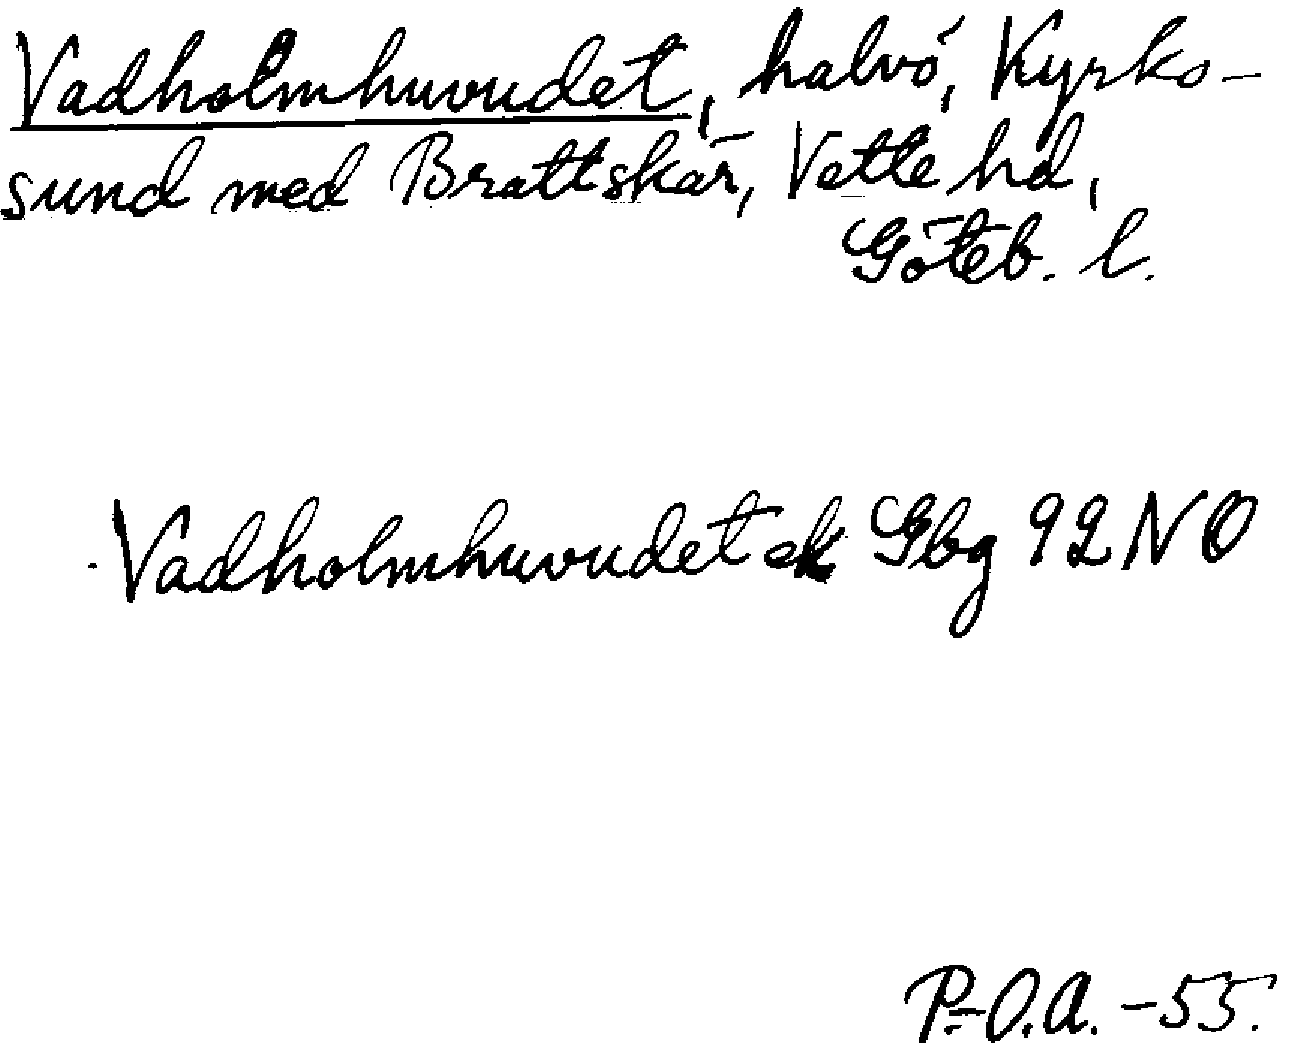 Vadholmhuvudet, halvö, Kyrko-
sund med Brattskär, Vette hd,
Göteb. l.
Vadholmhuvudet ek Gbg 92 NO
P.-O.A. -55.